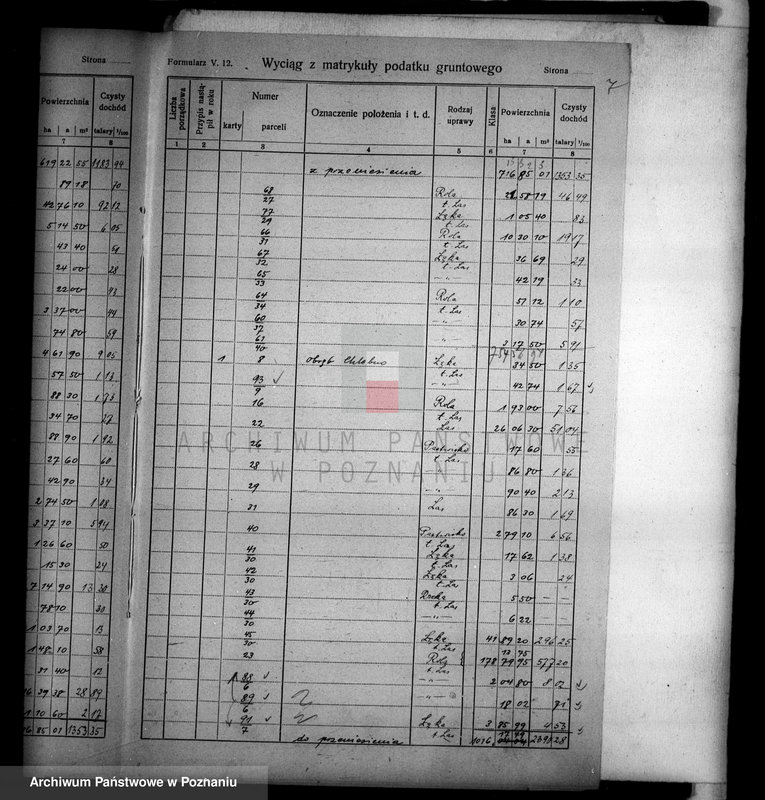 Strona
Powierzchnia Czysty dochód
ha a m² talary 1/100
7 8
619 22 55 1183 94
89 18 70
42 76 10 92 12
5 14 50 6 05
43 40 51
24 00 28
22 00 43
3 37 00 44
74 80 59
4 61 90 9 05
57 50 1 13
88 30 1 73
34 70 27
88 90 1 92
27 60 60
42 90 34
2 74 50 1 08
3 37 10 5 94
1 26 60 50
15 30 24
7 14 90 13 30
78 10 30
1 03 70 13
1 48 10 58
31 40 12
39 38 28 89
1 10 60 2 17
85 01 1353 35
Formularz V. 12. Wyciąg z matrykuły podatku gruntowego Strona
7
Liczba porządkowa Przypis nastąpił w roku Numer Oznaczenie położenia i t. d. Rodzaj uprawy Klasa Powierzchnia Czysty dochód
karty parceli ha a m² talary 1/100
1 2 3 4 5 6 7 8
z przeniesienia 716 85 01 1353 35
68/27 Rola t. Las 21 58 79 46 49
77/29 Łąka t. Las 1 05 40 83
66/31 Rola t. Las 10 30 10 19 17
67/32 Łąka t. Las 36 69 29
65/33 —„— 42 19 33
64/34 Rola t. Las 51 12 1 10
60/37 —„— 30 74 57
61/40 —„— 3 17 50 5 91
1 8 obręb Chłebno Łąka t. Las 84 50 1 35
93/9 —„— 42 74 1 67
16 Rola t. Las 1 93 00 7 56
22 Las 26 06 30 51 04
26 Pastwisko t. Las 17 60 55
28 —„— 86 80 1 36
29 —„— 90 40 2 13
31 Las 86 30 1 69
40 Pastwisko t. Las 2 79 10 6 56
41/30 Łąka t. Las 17 62 1 38
42/30 Łąka t. Las 3 06 24
43/30 t. Las 5 50 — —
44/30 —„— 6 22 — —
45/30 Łąka t. Las 41 89 20 296 25
23 Rola t. Las 178 79 95 577 20
88/6 —„— 2 04 80 8 02
89/6 —„— 18 02 71
91/7 Łąka t. Las 3 85 99 4 53
do przeniesienia 1016 2391 28
ARCHIWUM PAŃSTWOWE
W POZNANIU
Archiwum Państwowe w Poznaniu